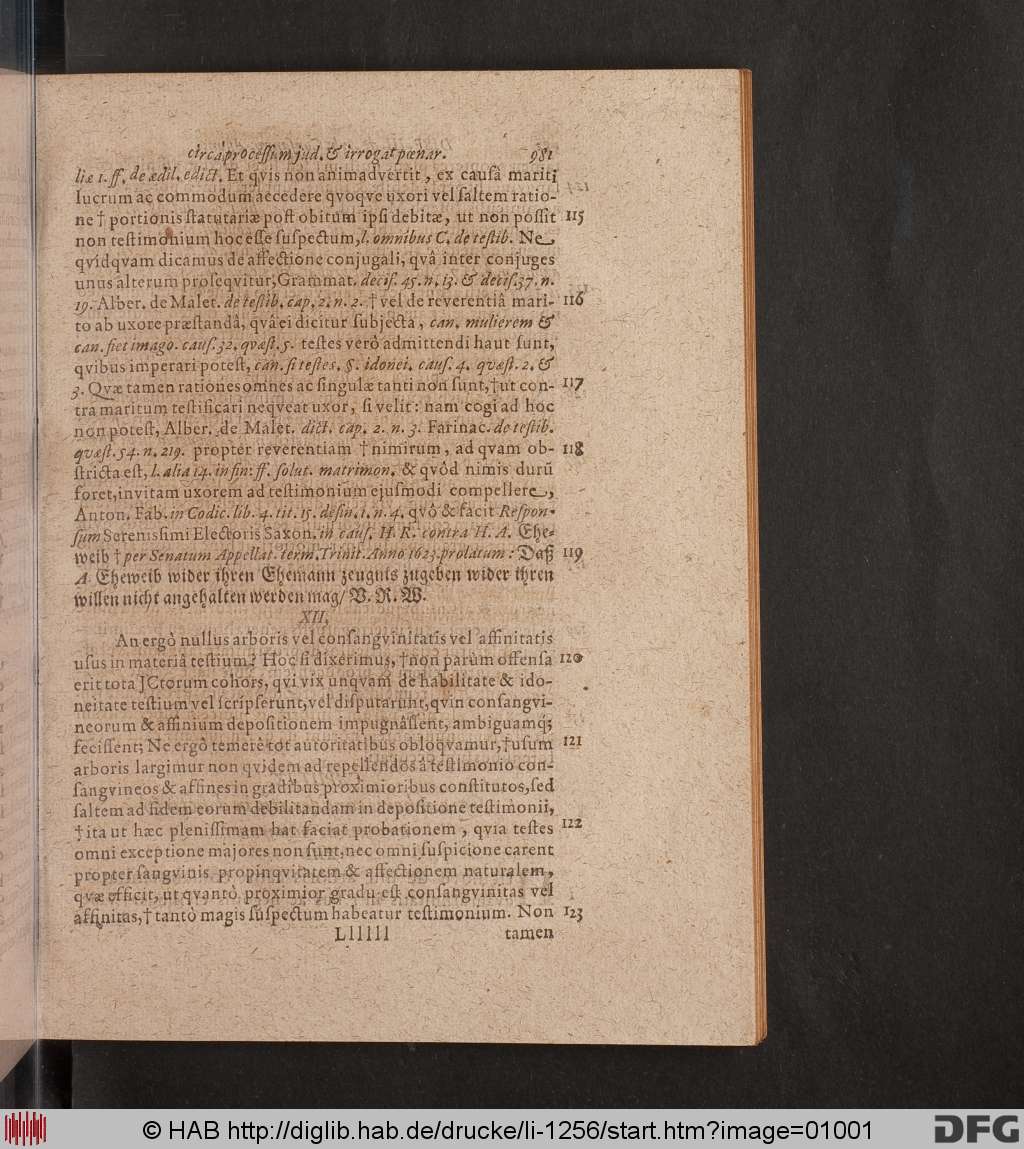 circa processum jud. & irrogat pœnar. 981
liæ 1. ff. de ædil. edict. Et qvis non animadvertit, ex causâ mariti
lucrum ac commodum accedere qvoqve uxori vel saltem ratio-
ne † portionis statutariæ post obitum ipsi debitæ, ut non possit 115
non testimonium hoc esse suspectum, l. omnibus C. de testib. Ne
qvidqvam dicamus de affectione conjugali, qvâ inter conjuges
unus alterum proseqvitur, Grammat. decis. 45. n. 13. & decis. 37. n.
19. Alber. de Malet. de testib. cap. 2. n. 2. † vel de reverentiâ mari- 116
to ab uxore præstandâ, qvâ ei dicitur subjecta, can. mulierem &
can. fiet imago. caus. 32. qvæst. 5. testes verò admittendi haut sunt,
qvibus imperari potest, can. si testes. §. idonei. caus. 4. qvæst. 2. &
3. Qvæ tamen rationes omnes ac singulæ tanti non sunt, † ut con- 117
tra maritum testificari neqveat uxor, si velit: nam cogi ad hoc
non potest, Alber. de Malet. dict. cap. 2. n. 3. Farinac. de testib.
qvæst. 54. n. 219. propter reverentiam † nimirum, ad qvam ob- 118
stricta est, l. alia 14. in fin: ff. solut. matrimon. & qvòd nimis durū
foret, invitam uxorem ad testimonium ejusmodi compellere,
Anton. Fab. in Codic. lib. 4. tit. 15. defin. 1. n. 4. qvò & facit Respon-
sum Serenissimi Electoris Saxon. in caus. H. R. contra H. A. Ehe-
weib † per Senatum Appellat. term. Trinit. Anno 1623. prolatum: Daß 119
A Eheweib wider ihren Ehemann zeugnis zugeben wider ihren
willen nicht angehalten werden mag/ V. R. W.
XII.
An ergò nullus arboris vel consangvinitatis vel affinitatis
usus in materiâ testium? Hoc si dixerimus, † non parùm offensa 120
erit tota JCtorum cohors, qvi vix unqvam de habilitate & ido-
neitate testium vel scripserunt, vel disputarunt, qvin consangvi-
neorum & affinium depositionem impugnâssent, ambiguamq́;
fecissent; Ne ergò temerè tot autoritatibus obloqvamur, † usum 121
arboris largimur non qvidem ad repellendos â testimonio con-
sangvineos & affines in gradibus proximioribus constitutos, sed
saltem ad fidem eorum debilitandam in depositione testimonii,
† ita ut hæc plenissimam hat faciat probationem, qvia testes 122
omni exceptione majores non sunt, nec omni suspicione carent
propter sangvinis propinqvitatem & affectionem naturalem,
qvæ efficit, ut qvantò proximior gradu est consangvinitas vel
affinitas, † tantò magis suspectum habeatur testimonium. Non 123
Llllll tamen
© HAB http://diglib.hab.de/drucke/li-1256/start.htm?image=01001
DFG